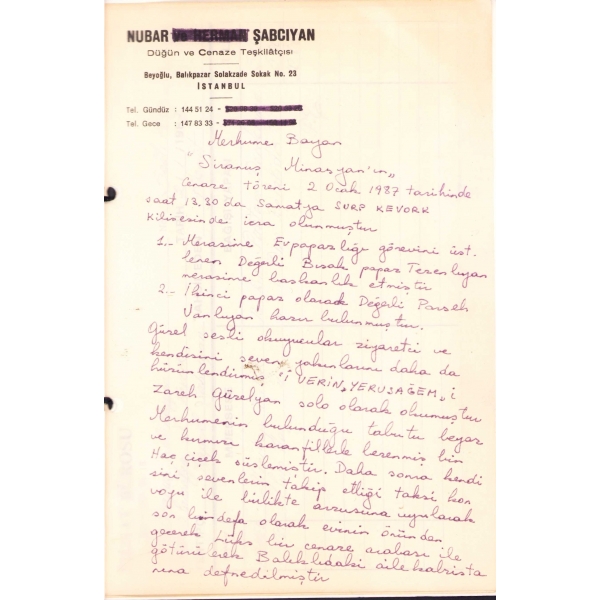 NUBAR ve HERMAN ŞABCIYAN
Düğün ve Cenaze Teşkilâtçısı
Beyoğlu, Balıkpazar Solakzade Sokak No. 23
İSTANBUL
Tel. Gündüz : 144 51 24 -
Tel. Gece : 147 83 33 -
Merhume Bayan
"Siranuş Minasyan'ın"
Cenaze töreni 2 Ocak 1987 tarihinde
saat 13.30'da Samatya SURP KEVORK
Kilisesinde icra olunmuştur
1.- Merasime Evpapazlığı görevini üst-
lenen Değerli Bısak papaz
merasime başkanlık etmiştir
2.- İkinci papaz olarak Değerli Parseh
Vanlıyan hazır bulunmuştur.
Güzel sesli okuyucular ziyaretci ve
kendisini seven yakınlarını daha da
hüzünlendirmiş "İ VERİN YERUSAĞEM" i
Zareh Güzelyan solo olarak okumuştur
Merhumenin bulunduğu tabutu beyaz
ve kırmızı karanfillerle bezenmiş bir
Haç çiçek süslemiştir. Daha sonra kendi
sini sevenlerin takip ettiği taksi kon
voyu ile birlikte arzusuna uyularak
son bir defa olarak evinin önünden
geçerek Lüks bir cenaze arabası ile
götürülerek Balıklıdaki aile kabrista
nına defnedilmiştir